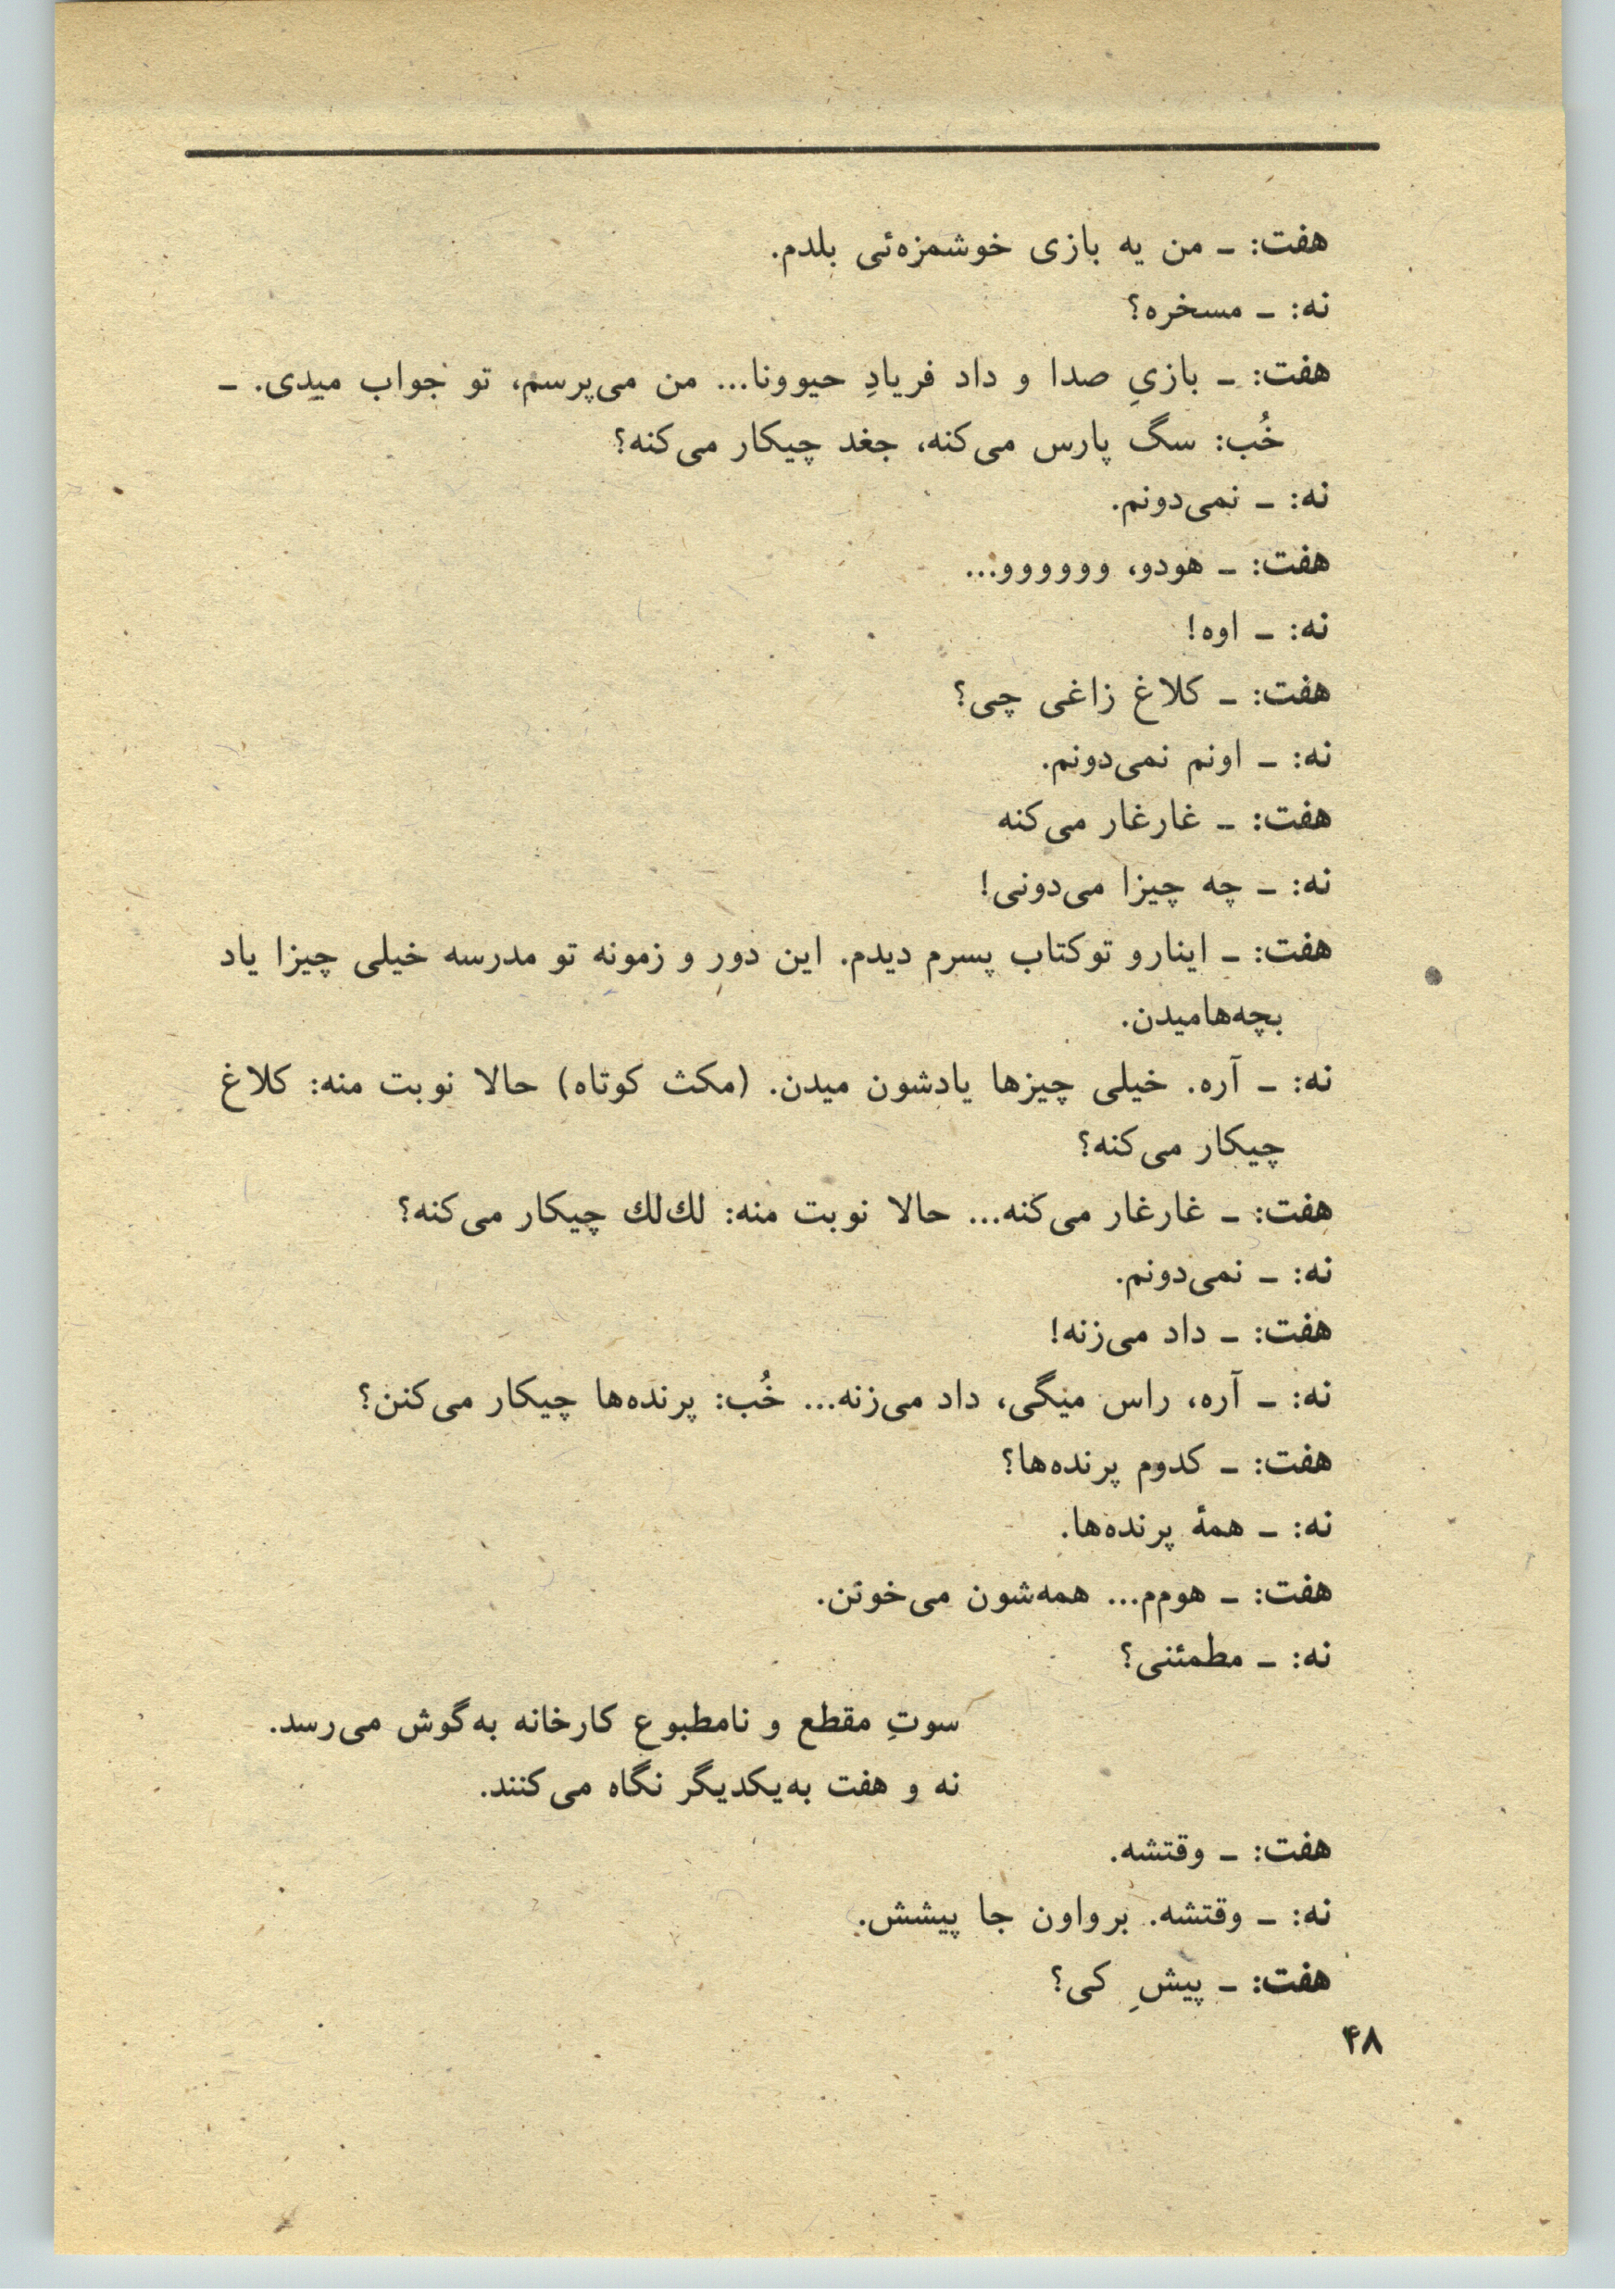 هفت: ـ من یه بازی خوشمزه‌ئی بلدم.
نه: ـ مسخره؟
هفت: ـ بازیِ صدا و داد فریادِ حیوونا... من می‌پرسم، تو جواب میدی. ـ
خُب: سگ پارس می‌کنه، جغد چیکار می‌کنه؟
نه: ـ نمی‌دونم.
هفت: ـ هودو، وووووو...
نه: ـ اوه!
هفت: ـ کلاغ زاغی چی؟
نه: ـ اونم نمی‌دونم.
هفت: ـ غارغار می‌کنه
نه: ـ چه چیزا می‌دونی!
هفت: ـ اینارو توکتاب پسرم دیدم. این دور و زمونه تو مدرسه خیلی چیزا یاد
بچه‌هامیدن.
نه: ـ آره. خیلی چیزها یادشون میدن. (مکث کوتاه) حالا نوبت منه: کلاغ
چیکار می‌کنه؟
هفت: ـ غارغار می‌کنه... حالا نوبت منه: لك‌لك چیکار می‌کنه؟
نه: ـ نمی‌دونم.
هفت: ـ داد می‌زنه!
نه: ـ آره، راس میگی، داد می‌زنه... خُب: پرنده‌ها چیکار می‌کنن؟
هفت: ـ کدوم پرنده‌ها؟
نه: ـ همهٔ پرنده‌ها.
هفت: ـ هوم‌م... همه‌شون می‌خونن.
نه: ـ مطمئنی؟
سوتِ مقطع و نامطبوع کارخانه به‌گوش می‌رسد.
نه و هفت به‌یکدیگر نگاه می‌کنند.
هفت: ـ وقتشه.
نه: ـ وقتشه. برواون جا پیشش.
هفت: ـ پیشِ کی؟
۴۸